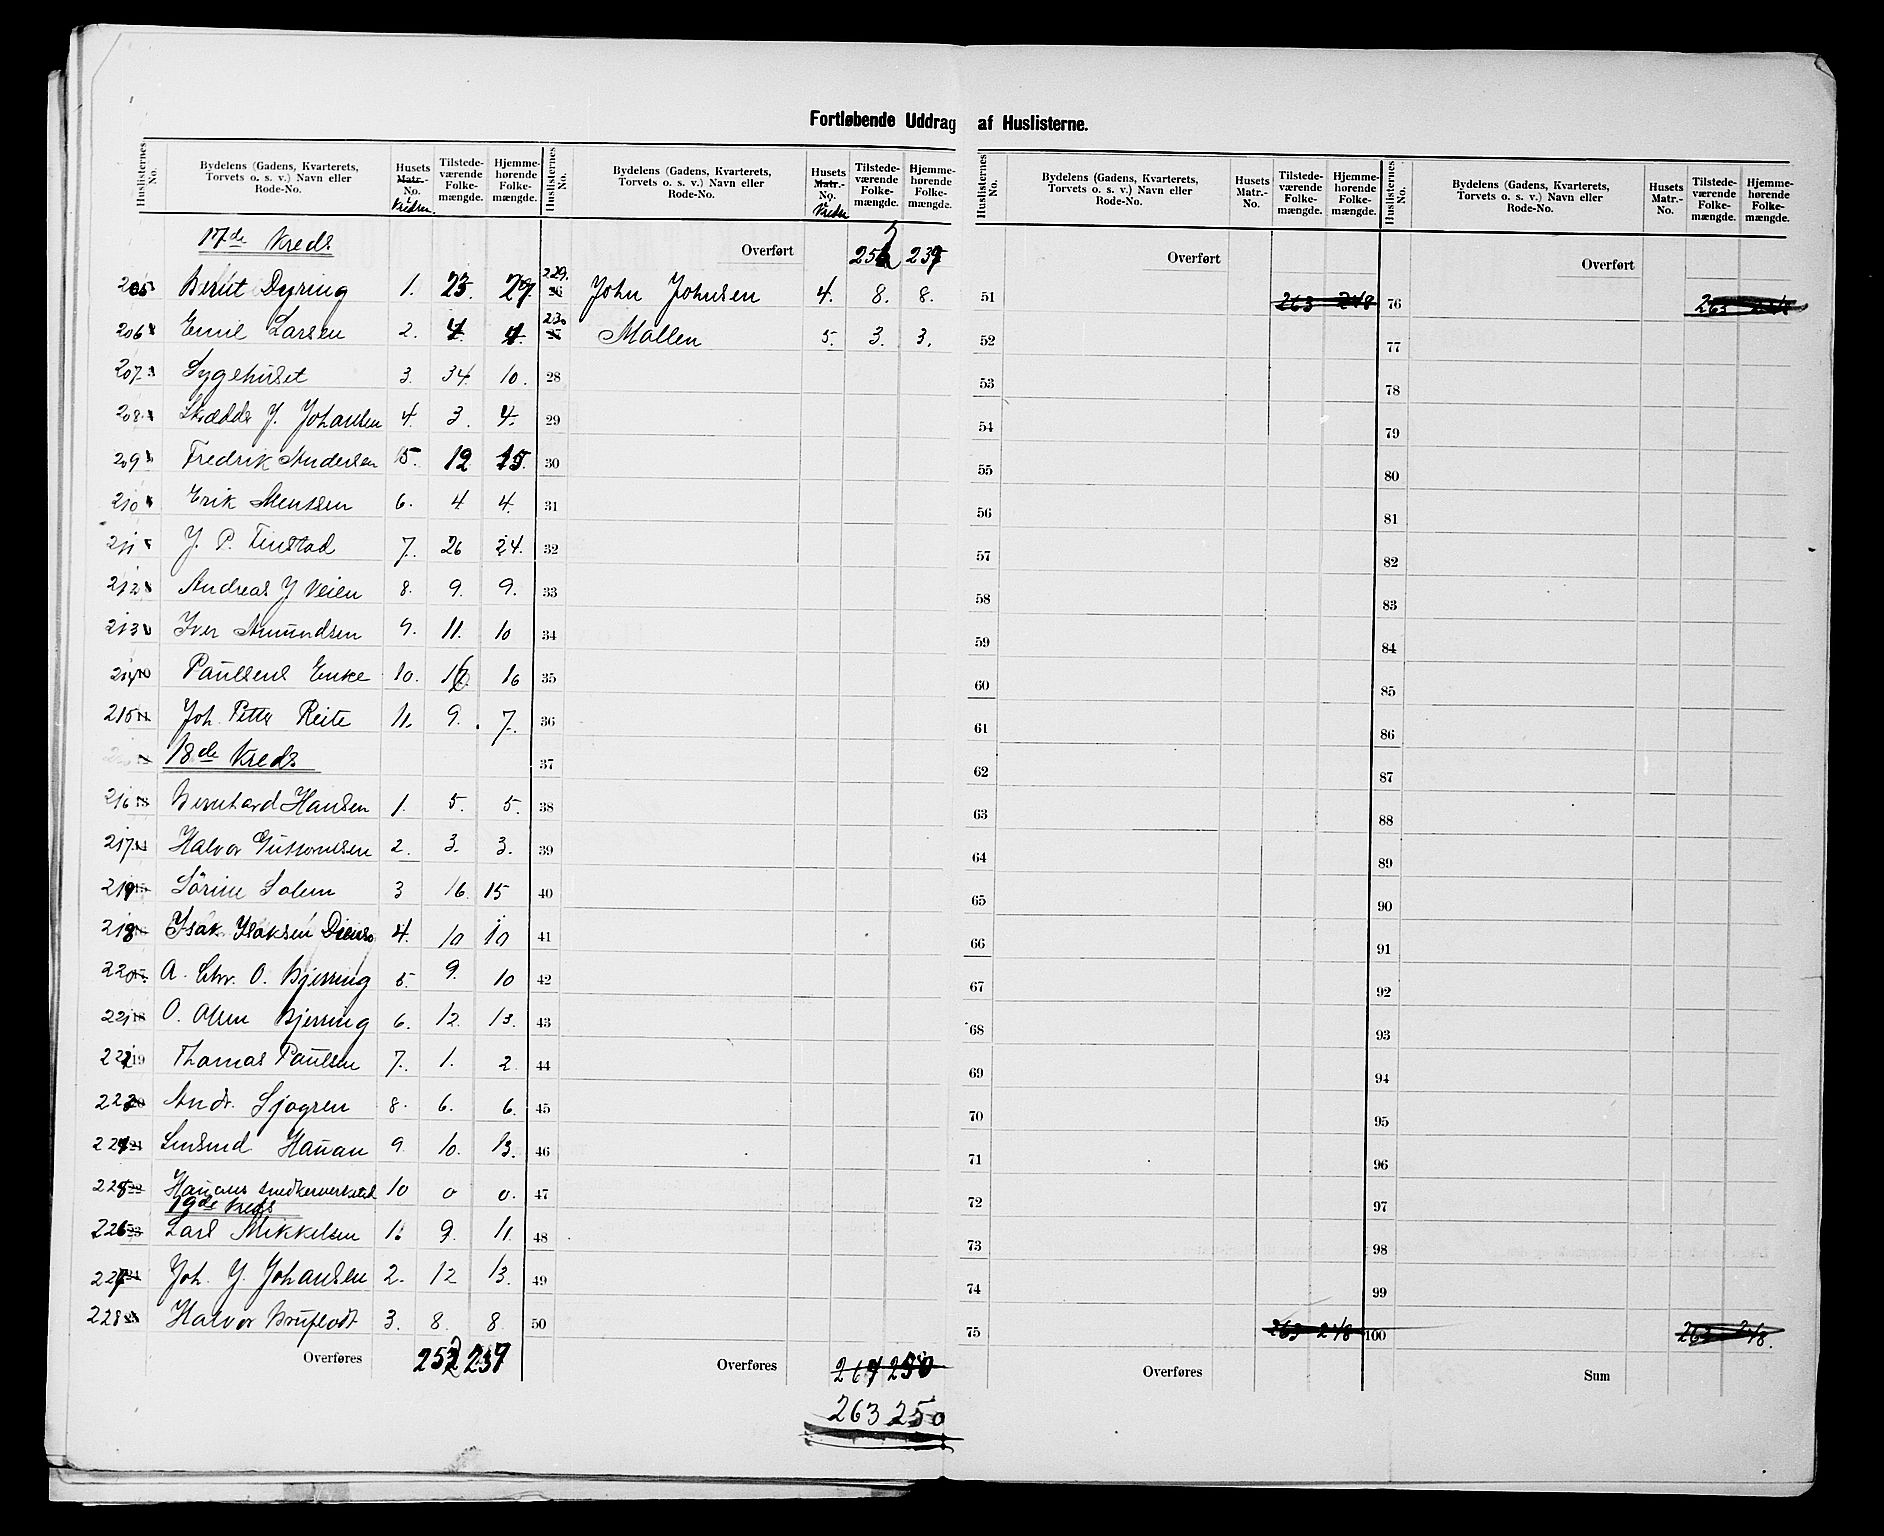 Fortløbende Uddrag af Huslisterne.
Huslisternes No.
Bydelens (Gadens, Kvarterets, Torvets o. s. v.) Navn eller Rode-No.
Husets Matr.- No. i Kredsen.
Tilstedeværende Folkemængde.
Hjemmehørende Folkemængde.
17de Kreds
205 Bernt Dyring 1. 23. 29.
206 Emil Larsen 2. 4. 4.
207 Sygehuset 3. 34. 10.
208 J. Johansen 4. 3. 4.
209 Fredrik Andersen 5. 12 15.
210 Erik Mentsen 6. 4 4.
211 J. P. Finstad 7. 26 24.
212 Andreas J Veien 8. 9. 9.
213 Iver Amundsen 9. 11. 10
214 Paulsens Enke 10. 16 16
215 Joh. Petter Reite 11. 9. 7.
18de Kreds
216 Bernhard Hansen 1. 5. 5.
217 Halvor 2. 3. 3.
219 Sörine Solem 3 16. 15
218 Isak Isaksen 4. 10 10
220 A. Chr. O. Bjerring 5. 9. 10
221 O. Olsen Bjerring 6. 12. 13.
222 19 Thomas Paulsen 7. 1. 2
223 Andr. Sjøgren 8. 6. 6.
224 Hauan 9 10. 13.
225 Hauans snedkerverksted 10 0 0.
19de Kreds
226 Lars Mikkelsen 1. 9. 11.
227 Joh. J. Johansen 2. 12 13.
228 Halvor 3. 8. 8
Overføres 252 237
Huslisternes No.
Bydelens (Gadens, Kvarterets, Torvets o. s. v.) Navn eller Rode-No.
Husets Matr.- No. i Kredsen
Tilstedeværende Folkemængde.
Hjemmehørende Folkemængde.
Overført 252 239
229. 26 John Johnsen 4. 8. 8.
230 27 Mollen 5. 3. 3.
28
29
30
31
32
33
34
35
36
37
38
39
40
41
42
43
44
45
46
47
48
49
50
Overføres 264 250
263 250
Huslisternes No.
Bydelens (Gadens, Kvarterets, Torvets o. s. v.) Navn eller Rode-No.
Husets Matr.- No.
Tilstedeværende Folkemængde.
Hjemmehørende Folkemængde.
Overført
51 263 248
52
53
54
55
56
57
58
59
60
61
62
63
64
65
66
67
68
69
70
71
72
73
74
75 263 248
Overføres
Huslisternes No.
Bydelens (Gadens, Kvarterets, Torvets o. s. v.) Navn eller Rode-No.
Husets Matr.- No.
Tilstedeværende Folkemængde.
Hjemmehørende Folkemængde.
Overført
76 263 248
77
78
79
80
81
82
83
84
85
86
87
88
89
90
91
92
93
94
95
96
97
98
99
100 263 248.
Sum